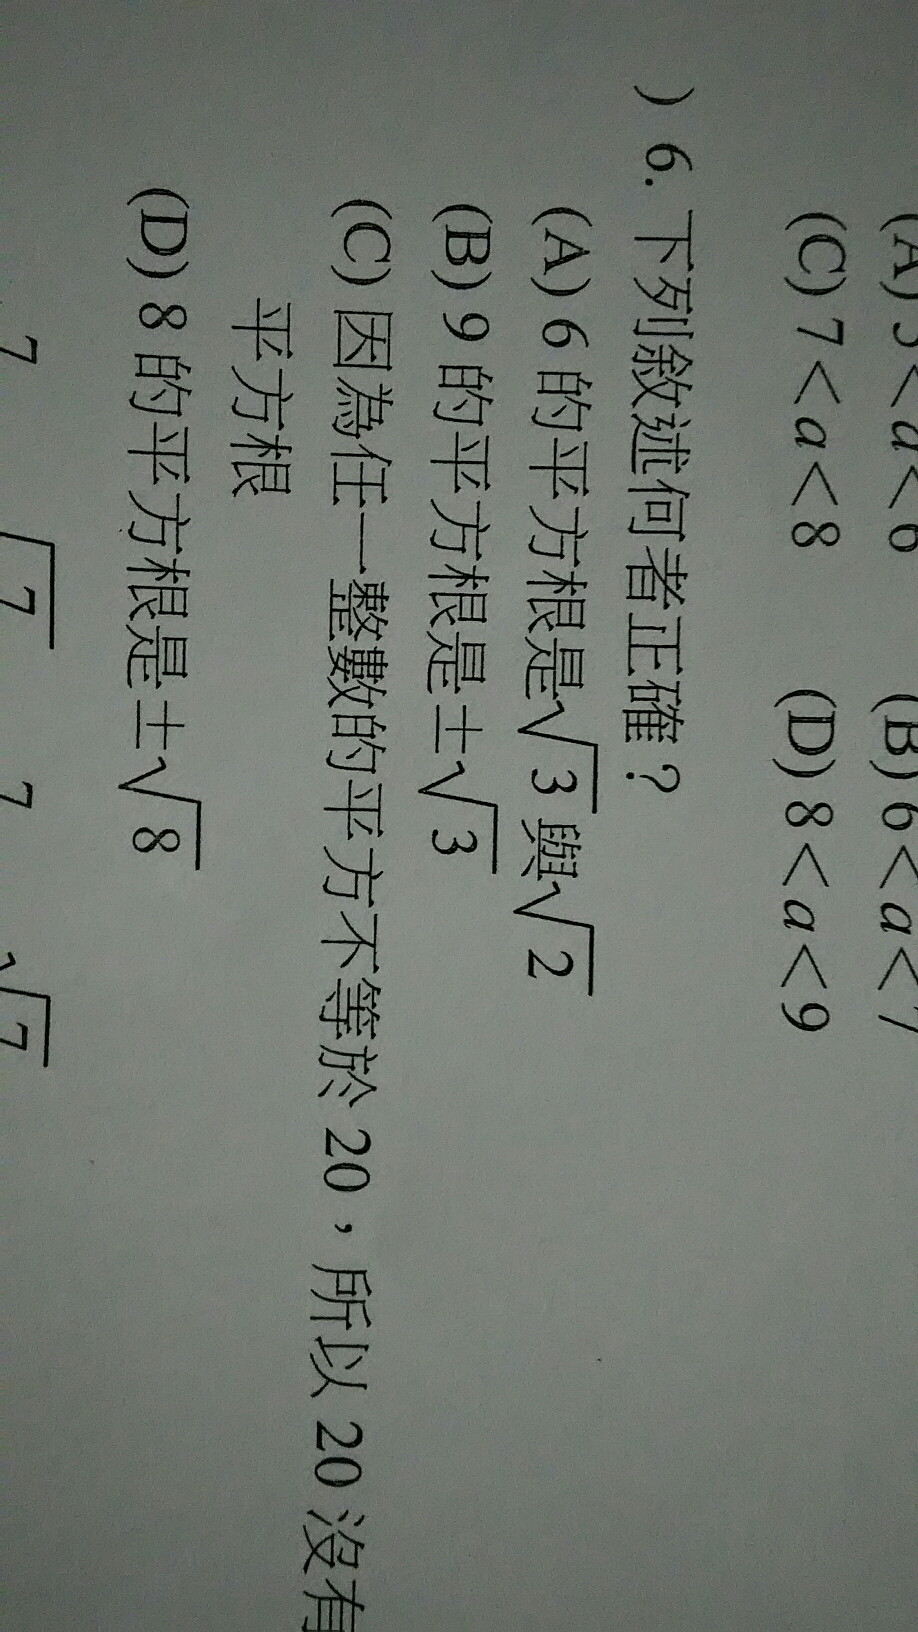 (A) 5<a<6 (B) 6<a<7
(C) 7<a<8 (D) 8<a<9
) 6. 下列敘述何者正確？
(A) 6 的平方根是√3 與√2
(B) 9 的平方根是±√3
(C) 因為任一整數的平方不等於 20，所以 20 沒有
平方根
(D) 8 的平方根是±√8
7 √7 7 √7